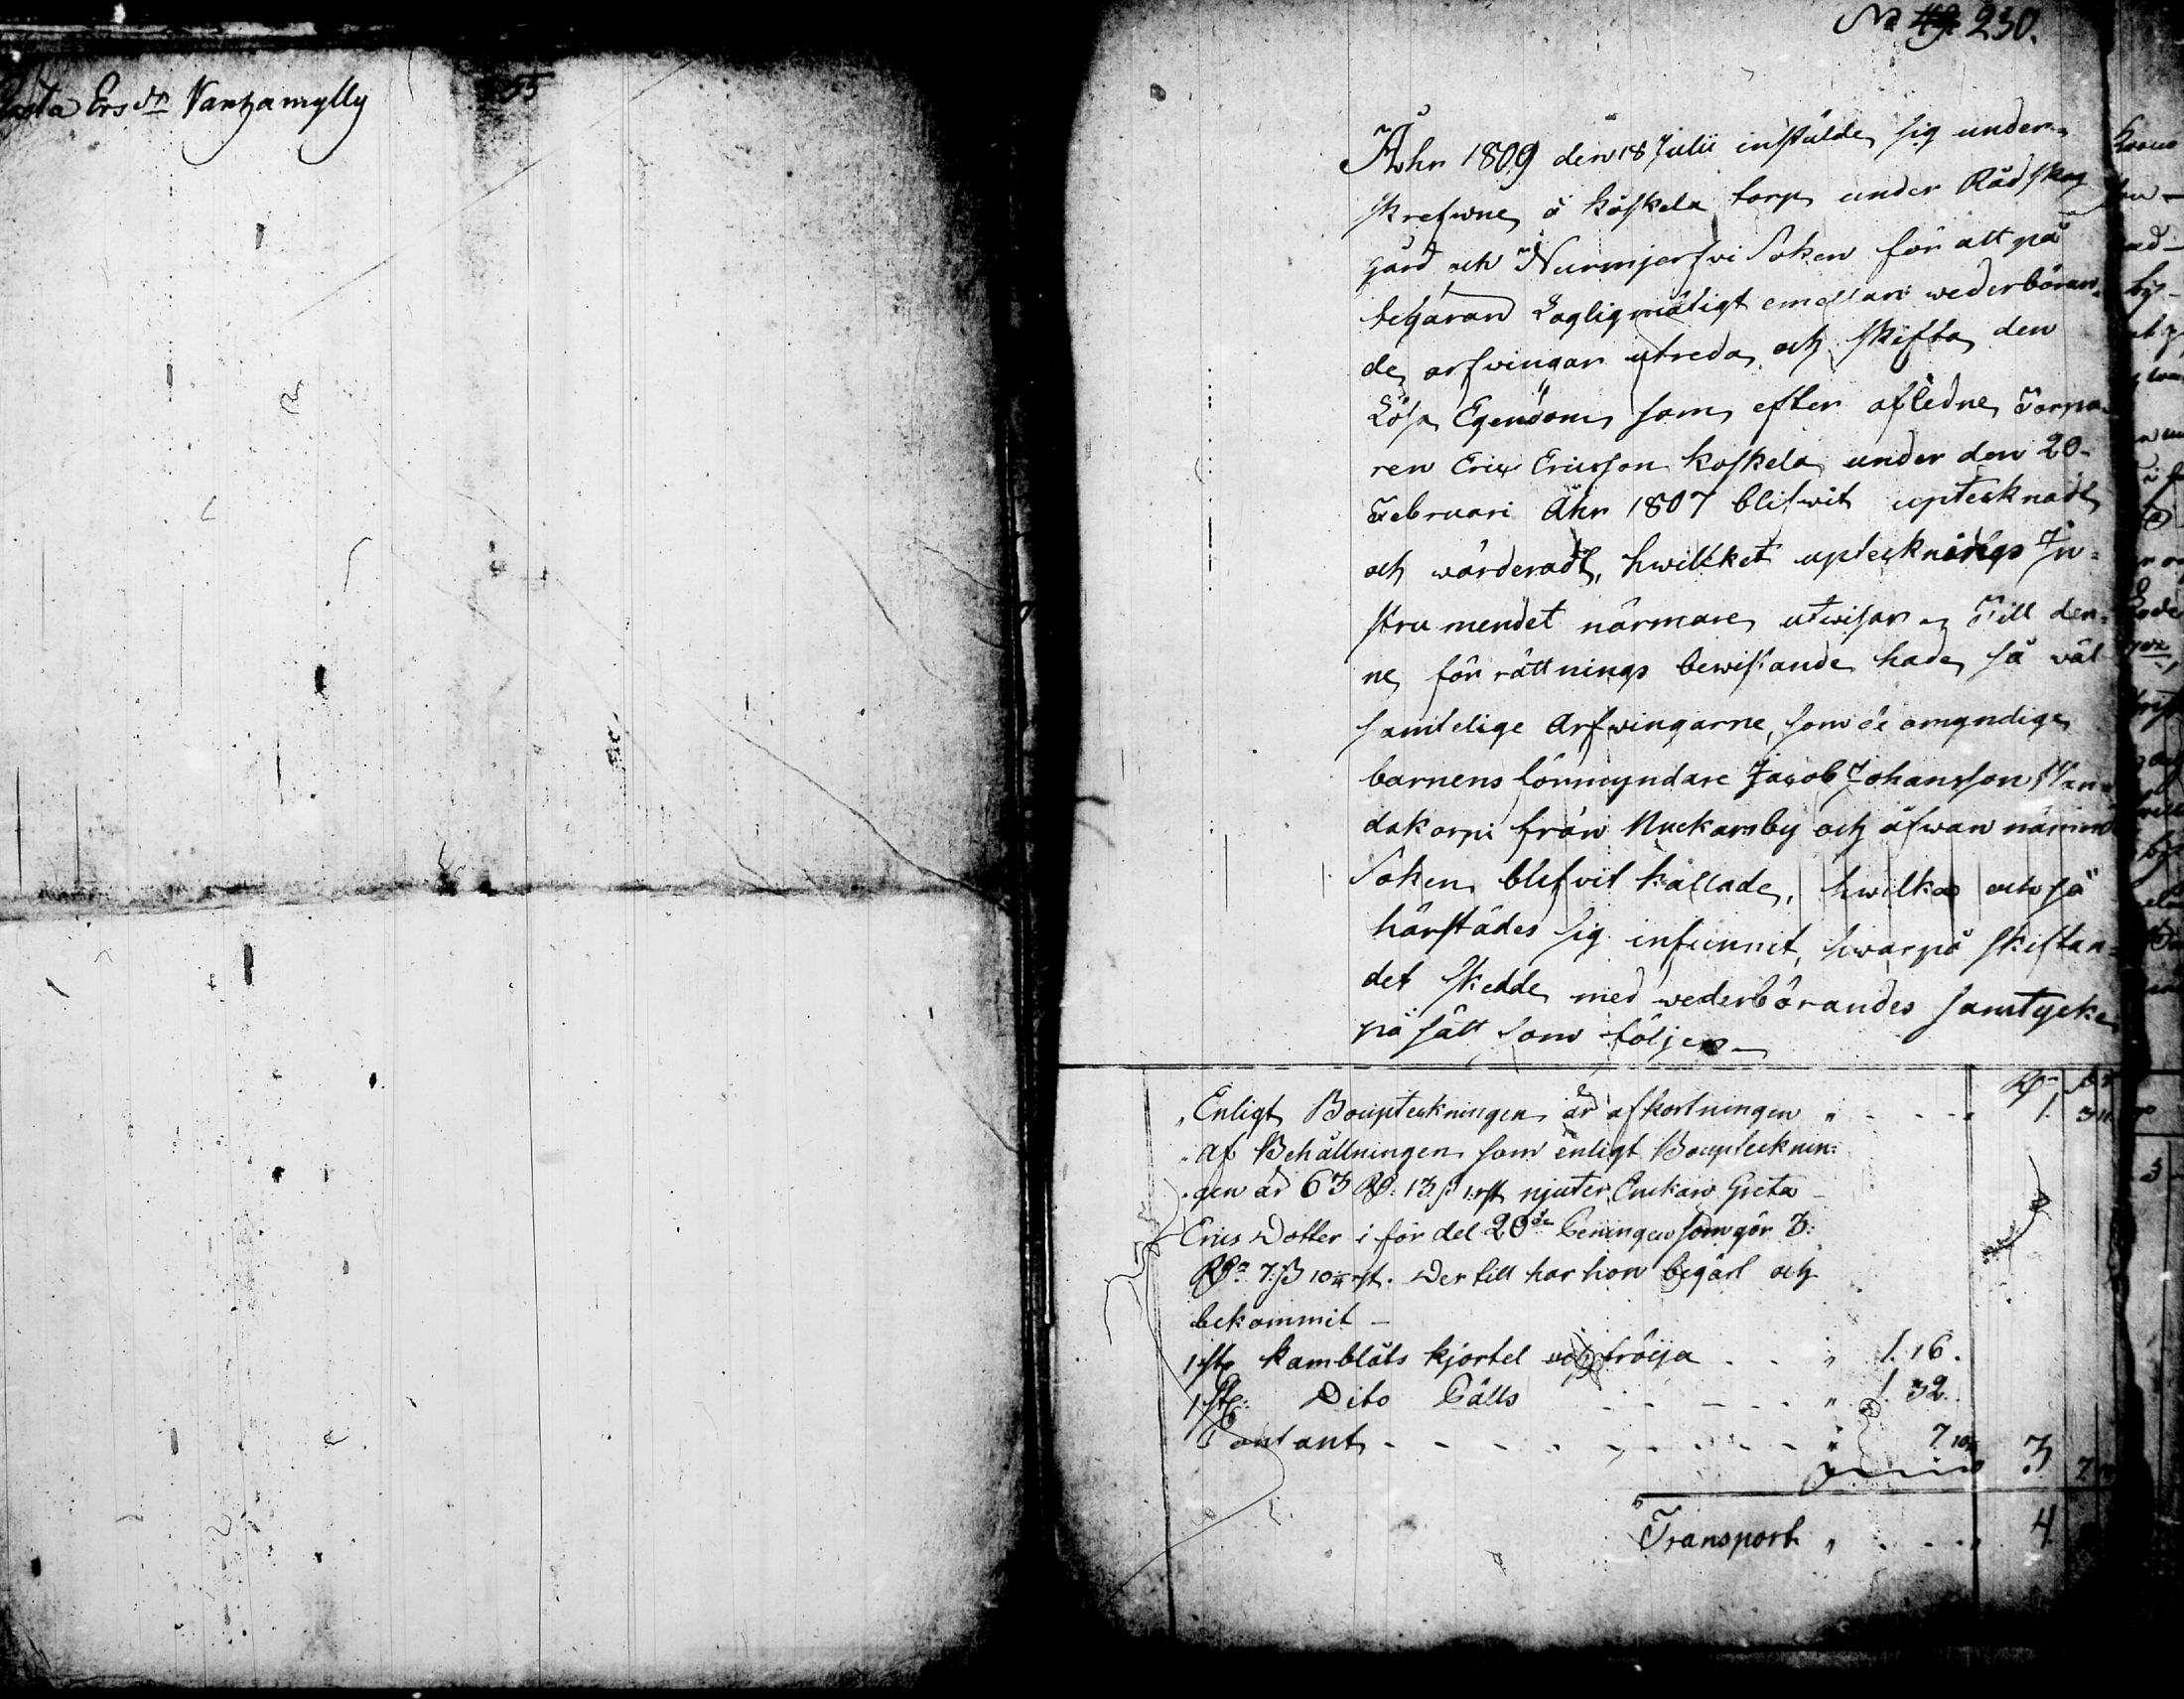 Ers dr Vanhamylly
55
No 49. 230.
Åhr 1809 den 18 Julii instälde sig under-
skrefwne å Koskela torp under Rådskog
gård och Nurmjerfvi Soken för att på
begäran Lagligmätigt emellan wederböran-
de arfwingar utreda och skifta den
Lösa Egendom som efter afledne Torpa-
ren Eric Ericsson Koskela under den 20
Februari Åhr 1807 blifwit uptecknadt
och wärderadt, hwilket uptecknings In-
strumendet närmare utwisar Till den-
ne förrättnings bewistande hade så wäl
samtelige Arfwingarne, som de omyndige
barnens förmyndare Jacob Johansson
dakorpi från Nuckarsby och äfwan nämnd
Soken blefvit kallade, hwilka ochså
härstädes sig infunnit, hwarpå skiftan-
det skedde med wederbörandes samtycke
på sätt som följer
Enligt Boupteckningen är afkortningen 1. 3
Af Behållningen som enligt Bouptecknin-
gen är 63 Rd: 13 s 1 rst njuter Enckan Greta
Erics Dotter i fördel 20de Peningen som gör 3:
Rd 7 s 10 rst. Der till har hon begärt och
bekommit
1 st Kamblåts kjortel och tröija 1. 16.
1 st: Dito 1. 32.
Contant 7 10 3 7
Transport 4